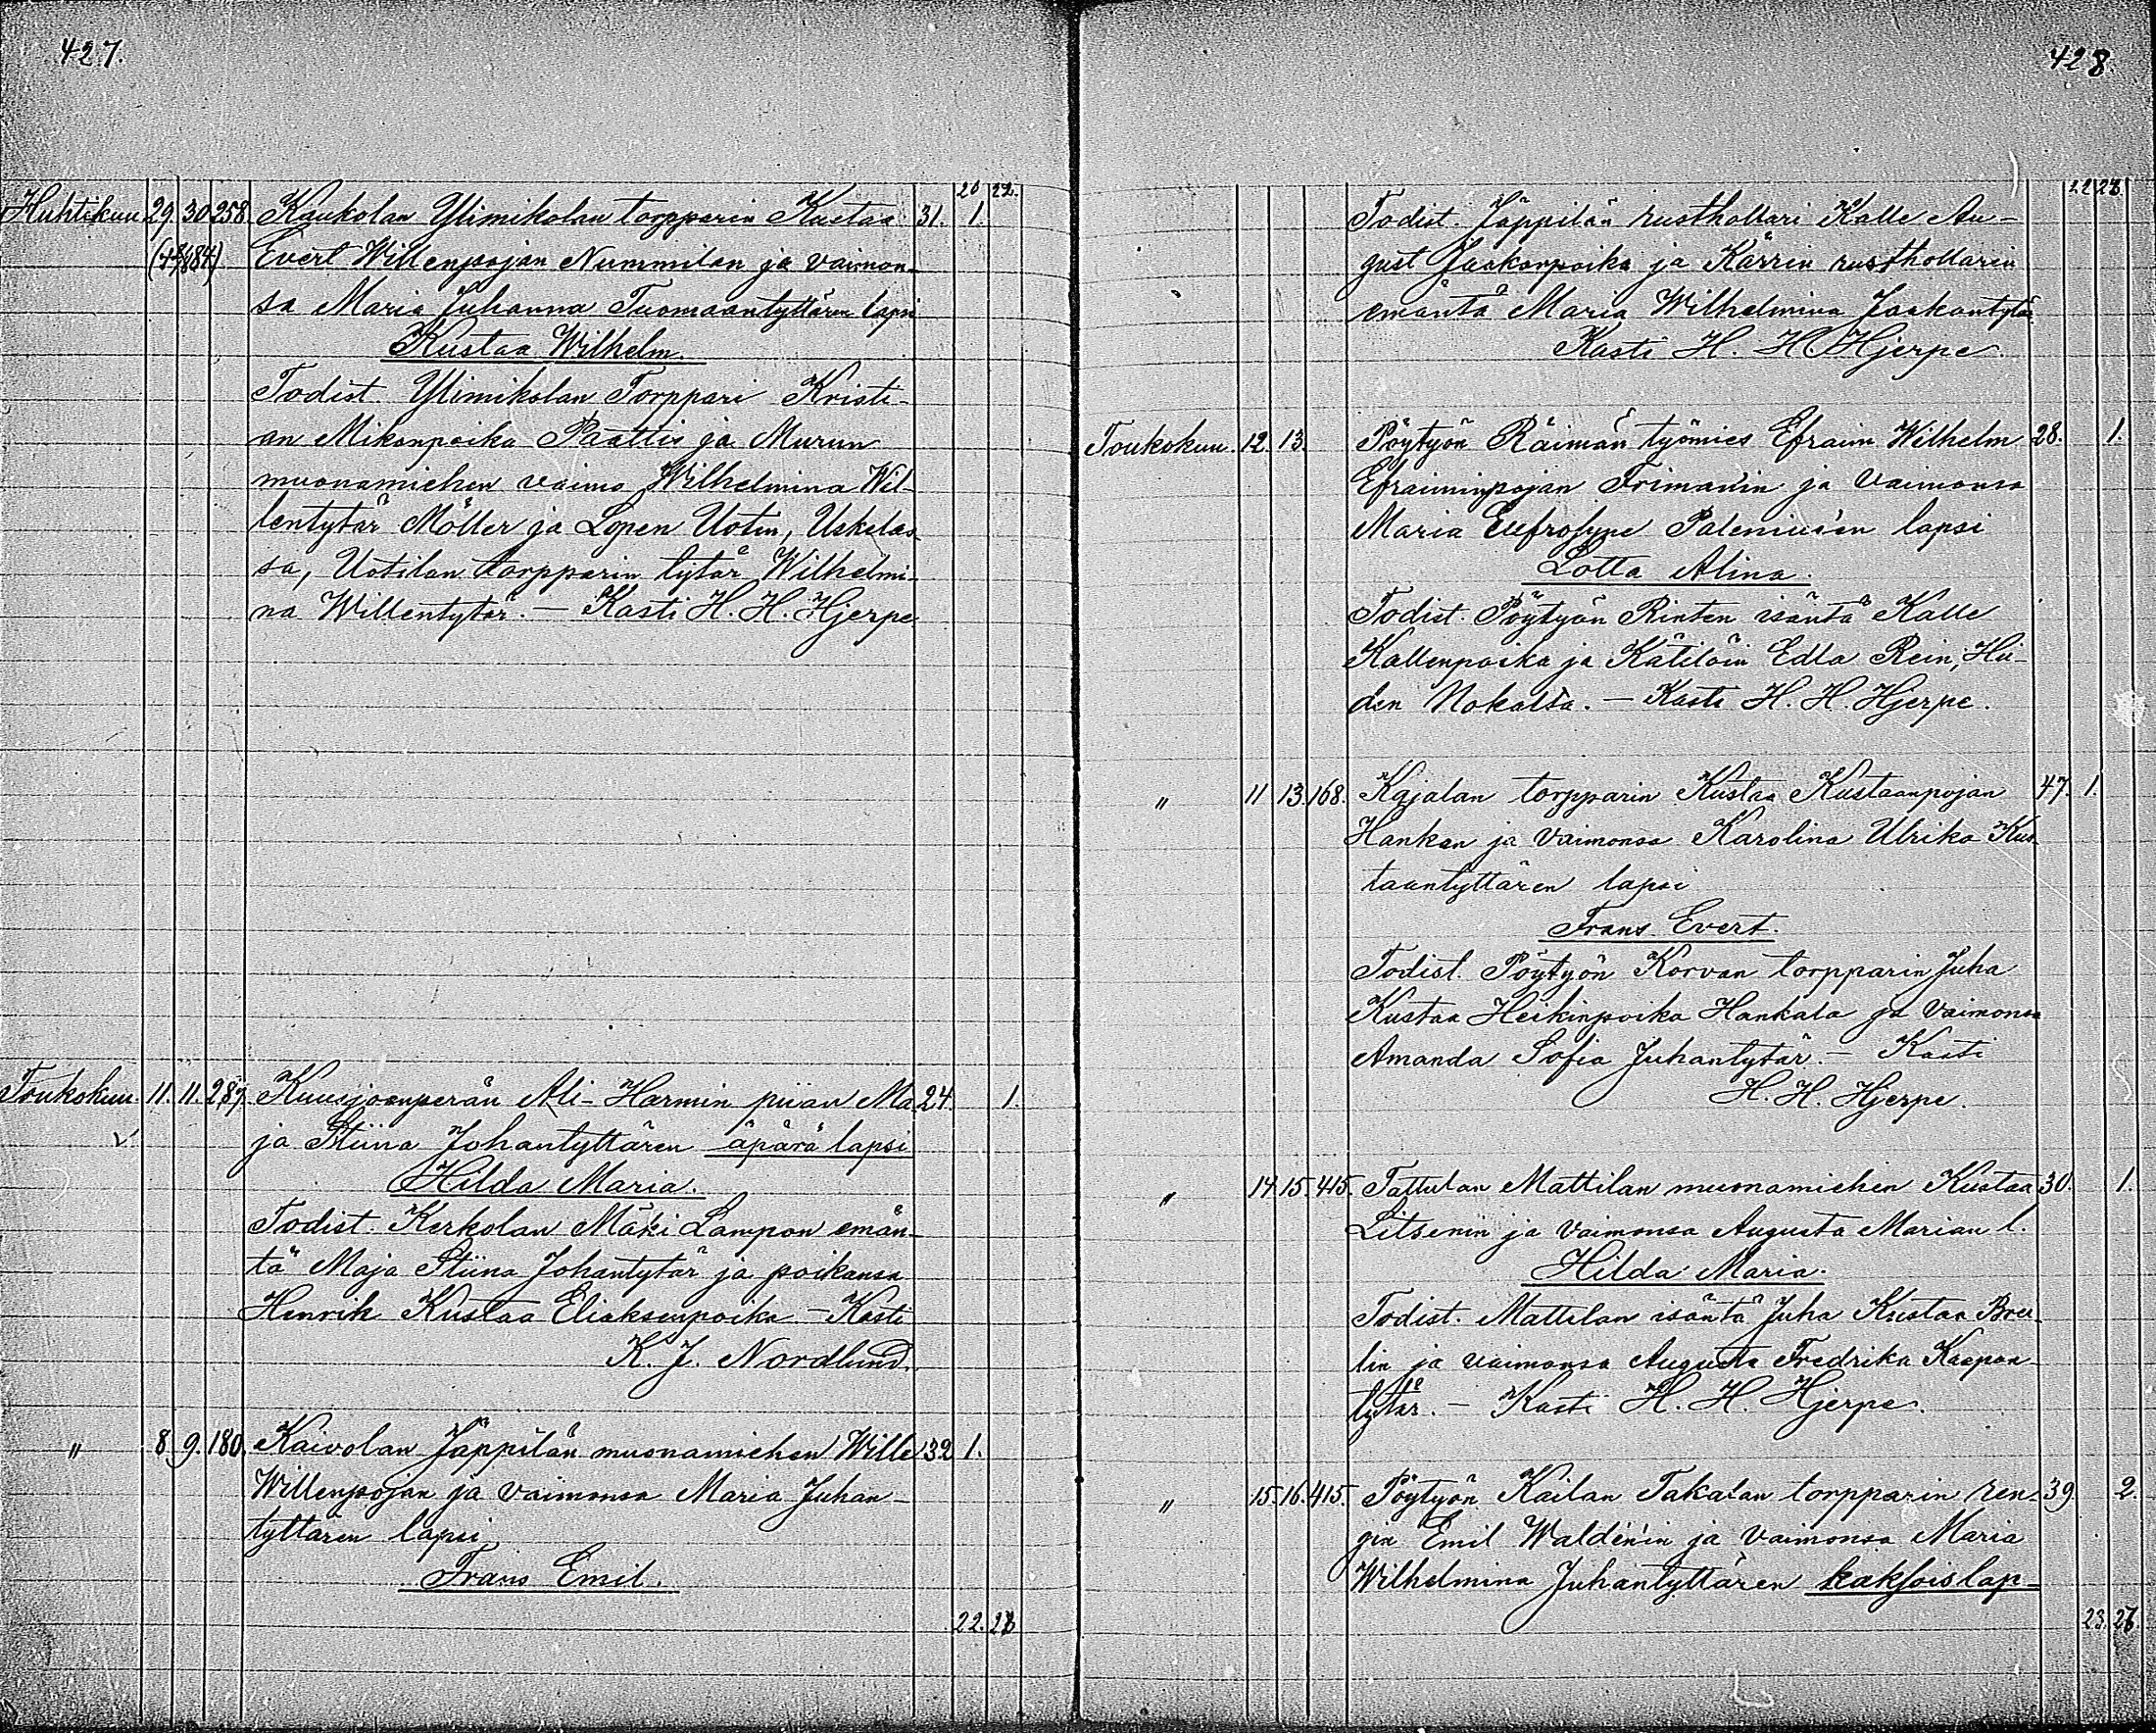 427.
20 22.
Huhtikuu 29 30 258 Kaukolan Ylimikolan torpparin Kustaa 31. 1.
Evert Willenpojan Nummilan ja vaimon-
sa Maria Juhanna Tuomaantyttären lapsi
Kustaa Wilhelm.
Todist. Ylimikolan Torppari Kristi-
an Mikonpoika Paattis ja Murun
muonamiehen vaimo Wilhelmina Wil-
lentytär Möller ja Lopen Uotin, Uskelas-
sa, Uotilan torpparin tytär Wilhelmi-
na Willentytär. – Kasti H. H. Hjerpe
Toukokuu. 11. 11. 287. Kuusjoenperän Ali-Harmin piian Ma 24. 1.
ja Stiina Johantyttären äpärä lapsi
Hilda Maria.
Todist. Kerkolan Mäki Lampon emän-
tä Maja Stiina Johantytär ja poikansa
Henrik Kustaa Eliaksenpoika – Kasti
K. J. Nordlund.
" 8 9. 180. Kaivolan Jäppilän muonamiehen Wille 32 1.
Willenpojan ja vaimonsa Maria Juhan-
tyttären lapsi
Frans Emil.
22. 23
428.
22 23.
Todist. Jäppilän rusthollari Kalle Au-
gust Jaakonpoika ja Kärrin rusthollarin
emäntä Maria Wilhelmina Jaakontytär
Kasti H. H. Hjerpe.
Toukokuu. 12. 13. Pöytyön Räimän työmies Efraim Wilhelm 28. 1.
Efraiminpojan Friman'in ja vaimonsa
Maria Eufrosyne Palenius'en lapsi
Lotta Alina.
Todist. Pöytyön Rinten isäntä Kalle
Kallenpoika ja Kätilöin Edla Rein, Hii-
den Nokalta. – Kasti H. H. Hjerpe.
" 11 13. 168. Kajalan torpparin Kustaa Kustaanpojan 47. 1.
Hankan ja vaimonsa Karolina Ulrika Kus-
taantyttären lapsi
Frans Evert.
Todist. Pöytyön Korvan torpparin Juha
Kustaa Heikinpoika Hankala ja vaimonsa
Amanda Sofia Juhantytär. – Kasti
H. H. Hjerpe.
" 14. 15. 415. Tattulan Mattilan muonamiehen Kustaa 30. 1.
Litsenin ja vaimonsa Augusta Marian l.
Hilda Maria.
Todist. Mattilan isäntä Juha Kustaa Bru-
lin ja vaimonsa Augusta Fredrika Kaapon-
tytär. – Kasti H. H. Hjerpe.
" 15. 16. 415. Pöytyön Kailan Takalan torpparin ren- 39. 2.
gin Emil Waldén'in ja vaimonsa Maria
Wilhelmina Juhantyttären kaksoislap-
23. 26.